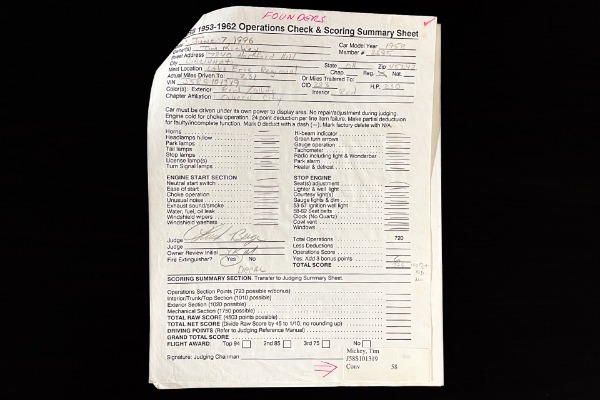 FOUNDERS
1953-1962 Operations Check & Scoring Summary Sheet
June 7, 1996 Car Model Year 1958
Tim Mickey Member #
Street Address
City Cincinnati State OH Zip
Meet Location Lake Erie Regional Chap. Reg. X Nat.
Actual Miles Driven To: 231 Or Miles Trailered To:
VIN J58S101319 CID 283 H.P. 230
Color(s): Exterior Interior Red
Chapter Affiliation
Car must be driven under its own power to display area. No repair/adjustment during judging.
Engine cold for choke operation. 24 point deduction per line item failure. Make partial deductions
for faulty/incomplete function. Mark 0 deduct with a dash (—). Mark factory delete with N/A.
Horns Hi-beam indicator
Headlamps hi/low Green turn arrows
Park lamps Gauge operation
Tail lamps Tachometer
Stop lamps Radio including light & Wonderbar
License lamp(s) Park alarm
Turn Signal lamps Heater & defrost
ENGINE START SECTION STOP ENGINE
Neutral start switch Seat(s) adjustment
Ease of start Lighter & well light
Choke operation Courtesy light(s)
Unusual noise Gauge lights & dim
Exhaust sound/smoke 53-57 Ignition well light
Water, fuel, oil leak 58-62 Seat belts
Windshield wipers Clock (No Quartz)
Windshield washers Cowl vent
Windows
Judge Total Operations 720
Judge Less Deductions
Owner Review Initial Operations Score
Fire Extinguisher? Yes No Yes: Add 3 bonus points
TOTAL SCORE
SCORING SUMMARY SECTION Transfer to Judging Summary Sheet.
Operations Section Points (723 possible w/bonus)
Interior/Trunk/Top Section (1010 possible)
Exterior Section (1020 possible)
Mechanical Section (1750 possible)
TOTAL RAW SCORE (4503 points possible)
TOTAL NET SCORE (Divide Raw Score by 45 to 1/10, no rounding up)
DRIVING POINTS (Refer to Judging Reference Manual)
GRAND TOTAL SCORE
FLIGHT AWARD: Top 94 2nd 85 3rd 75 No
Signature: Judging Chairman
Mickey, Tim
J58S101319
Conv 58